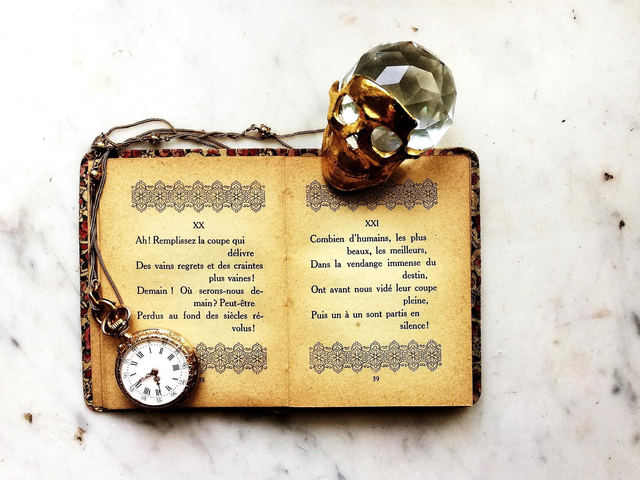 XX
Ah! Remplissez la coupe qui
délivre
Des vains regrets et des craintes
plus vaines!
Demain! Où serons-nous de-
main? Peut-être
Perdus au fond des siècles ré-
volus!
XXI
Combien d'humains, les plus
beaux, les meilleurs,
Dans la vendange immense du
destin,
Ont avant nous vidé leur coupe
pleine,
Puis un à un sont partis en
silence!
39